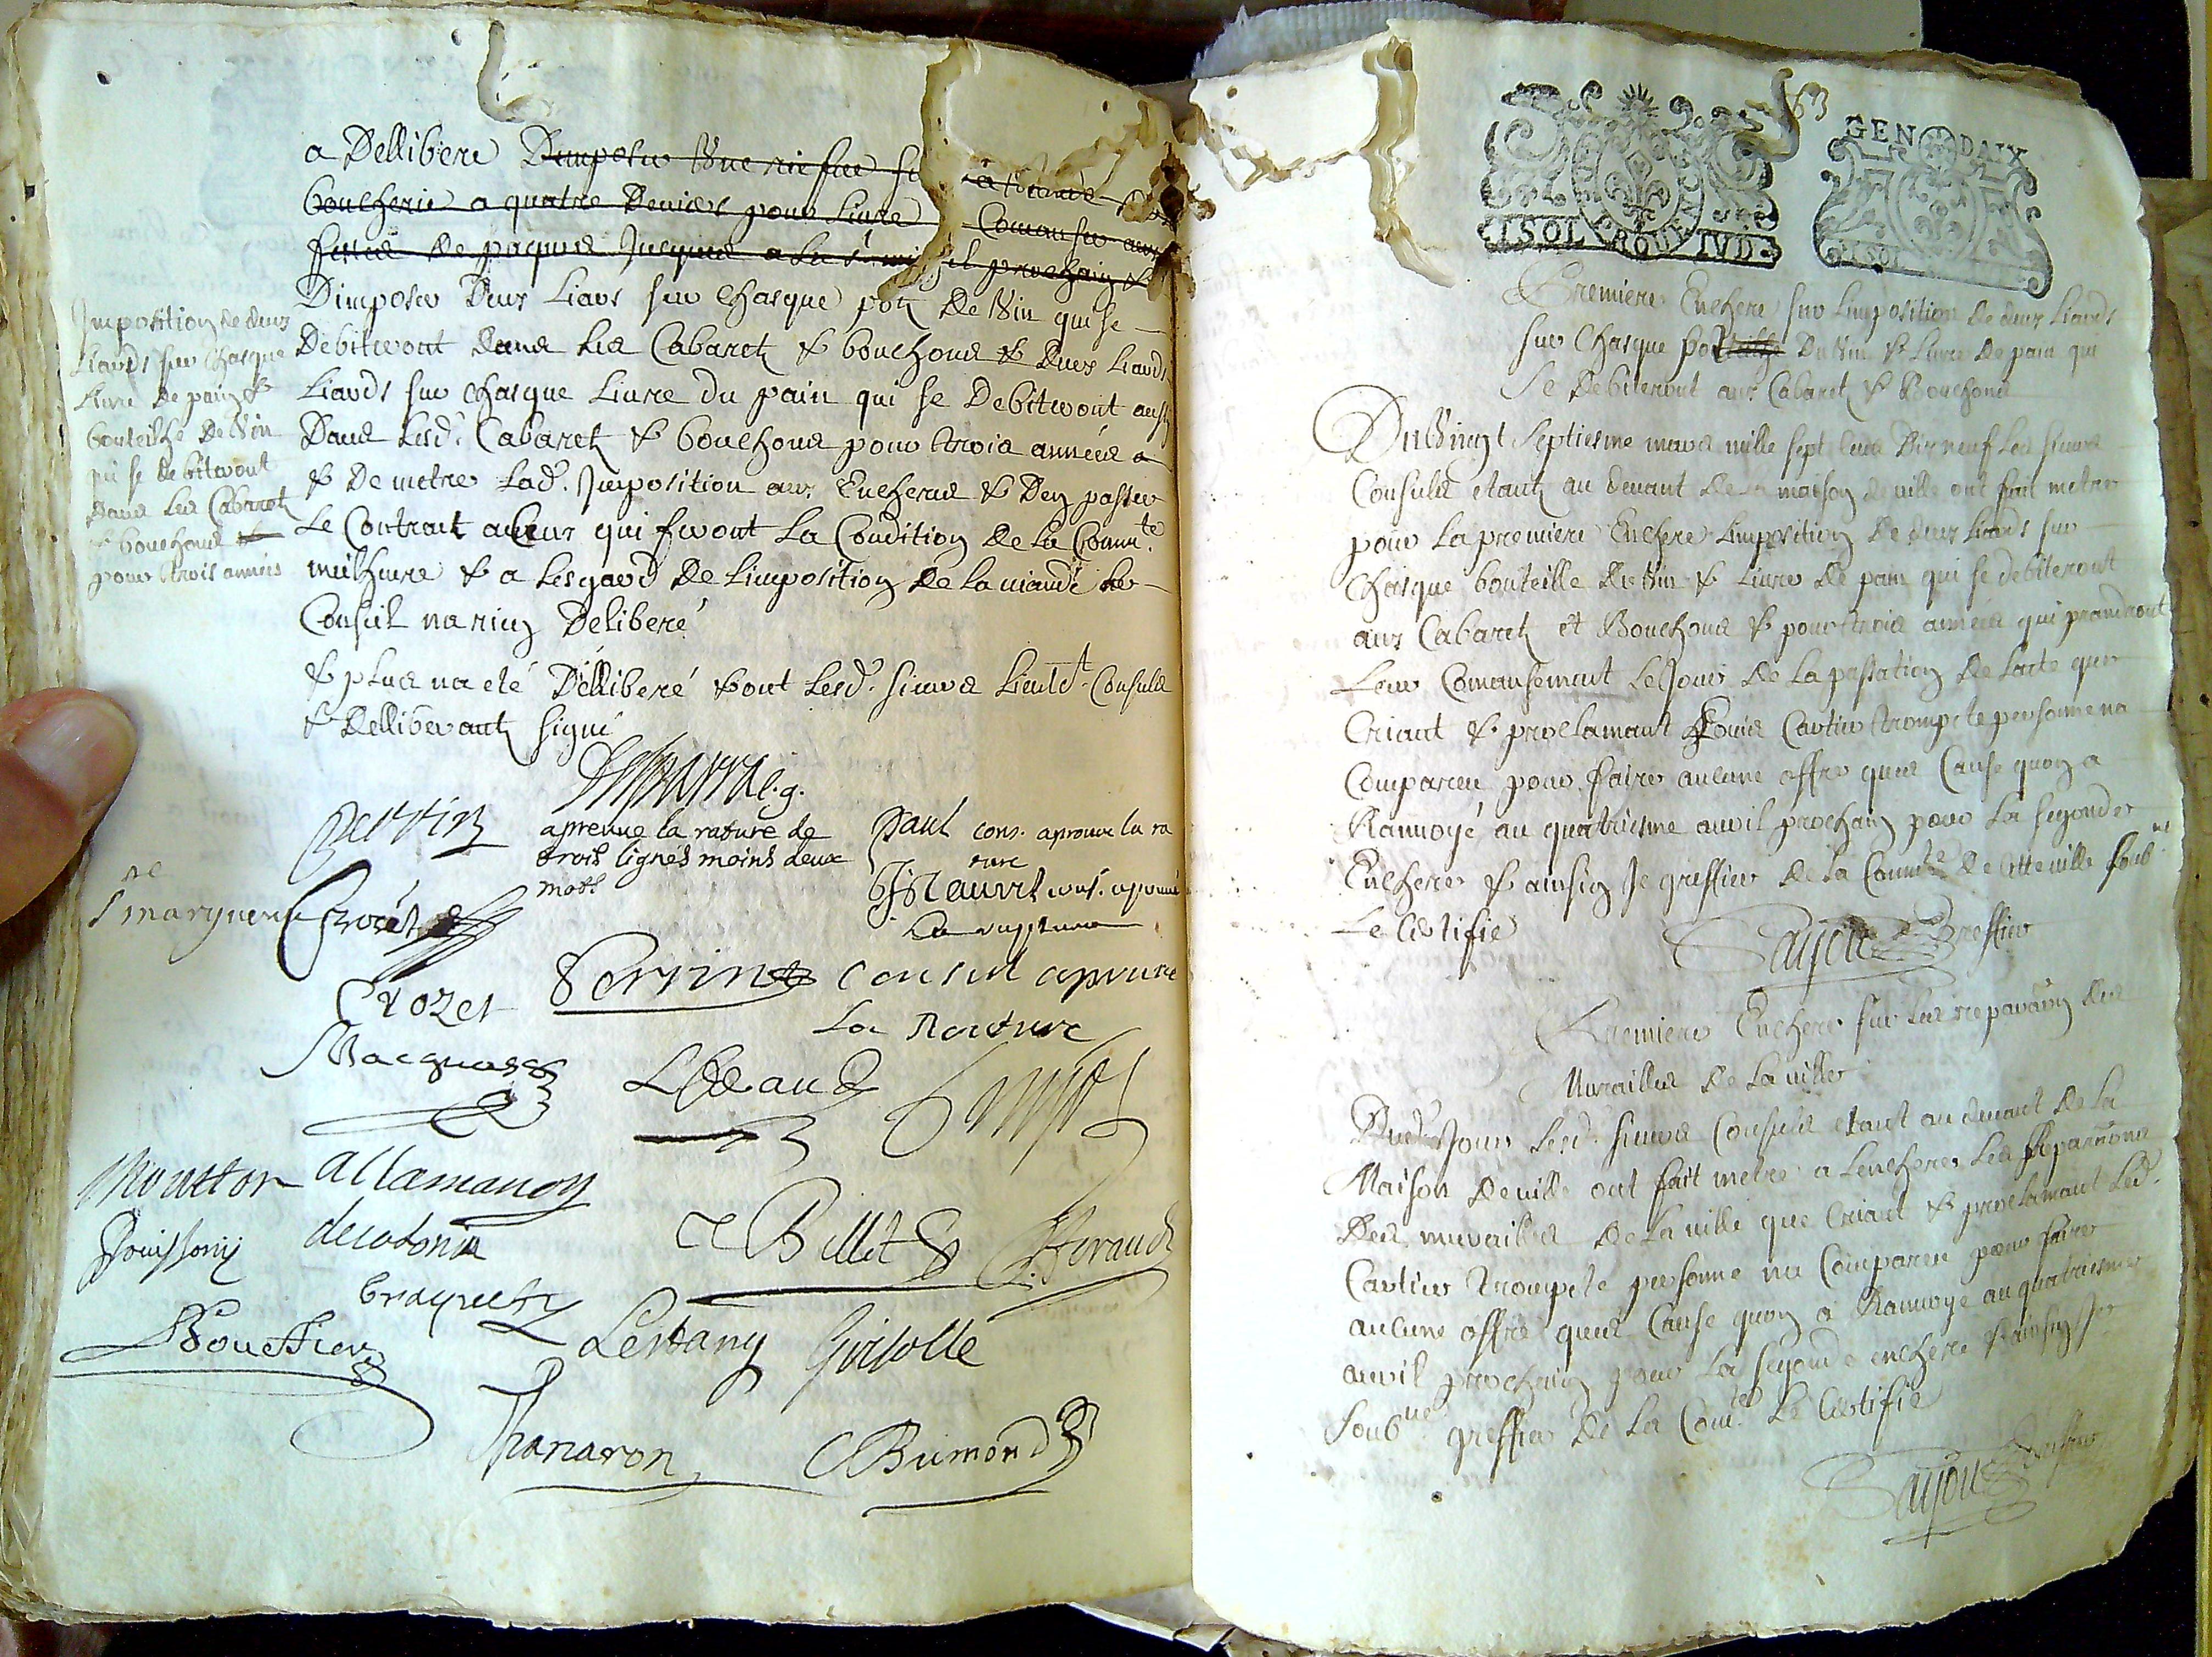 a Dellibere Dimposer Une rieffve su la viande
boucherie a quatre Deniers pour Livre Comanser aux
festes de paques Jusques a la s.t michel prochain &
Dimposer Deux Liars sur chasque pot De Vin qui se
Debiteront dans Les Cabarets & bouchons & Deux Liards
Liards sur chasque Livre du pain qui se Debiteront aussy
Dans Lesd. Cabarets & bouchons pour trois années
& De metre Lad. Imposition aux Encheres & Den passer
Le Contrait a Ceux qui feront La Condition De La Comm.te
meilheure & a Lesgard De Limposition De La viande Le
Conseil na rien Deliberé
& plus na eté Délliberé & ont Lesd. sieurs Lieut.t Consuls
& Delliberants signé
Imposition de deux
Liards sur chasque
Livre De pain &
bouteilhe De Vin
qui se debiteront
Dans Les Cabarets
& bouchons
pour trois années
aprouve la rature de
trois lignes moins deux
mots
Paul cons. aprouve la ra
ture
Isnauris cons. aprouve
La rupture
S.te marguerite Crozet
Crozet
Perrin Consul aprouve
La Rature
Macquas
Moutton
allamanon
Bouissony
decadonia
Billet
Feraud
braquety
Bouffier
Lestang
Guisolle
Thanaron
CBrimond
63
GEN DAIX
1SOL ROUL IVD
1SOL
Premiere Enchere sur Limposition De deux Liards
sur Chasque pot Du Vin & Livre De pain qui
Se Debiteront aux Cabarets & Bouchons
Du Vingt Septiesme mars mille sept Cens Dix neuf Les sieurs
Consuls etants au devant De La maison de ville ont fait metre
pour La premiere Enchere Limposition De deux Liards sur
Chasque bouteille De Vin & Livre De pain qui se debiteront
aux Cabarets et Bouchons & pour trois années qui prandront
Leur Comansement Le Jour De La passation De Lacte que
Criant & proclamant Louis Cartier trompete personne na
Compareu pour faire aucune offre quest Cause quon a
Ranvoyé au quatriesme avril prochain pour La segonde
Enchere & ainsin Je greffier De La Comm.té De Cette ville soub.né
Le Certifie
Saujou Greffier
Premiere Enchere sur Les reparaôns Des
Murailles De La ville
Dud. Jour Lesd. sieurs Consuls etant au devant De La
Maison De ville ont fait metre a Lenchere Les Reparaôns
Des murailles De La ville que Criant & proclamant Led.
Cartier trompete personne na Compareu pour faire
aucune offre quest Cause quon a Ranvoyé au quatriesme
avril prochain pour La segonde enchere & ainsin Je
soub.né greffier De La Com.té Le Certifie
Saujou Greffier